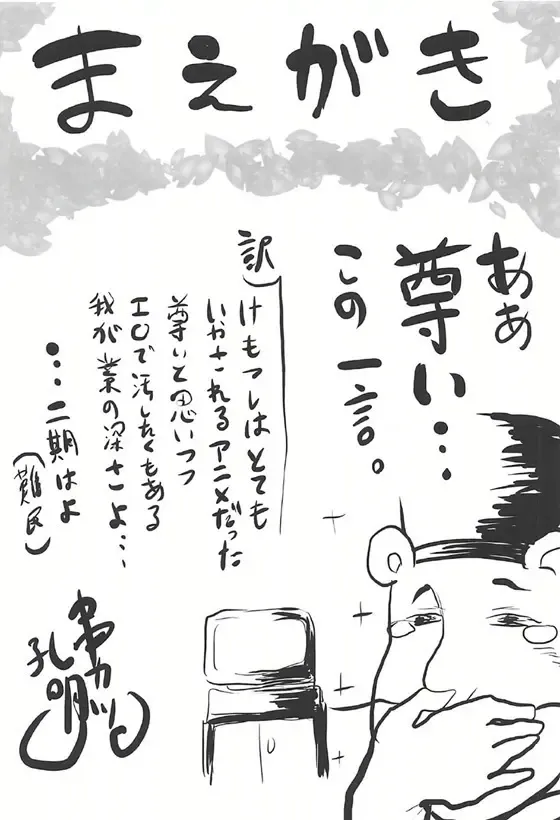 まえがき
ああ
尊い…
この一言。
訳
けもフレはとても
いやされるアニメだった
尊いと思いつつ
エロで汚したくもある
我が業の深さよ…
…二期はよ
(難民)
串カツ
孔明